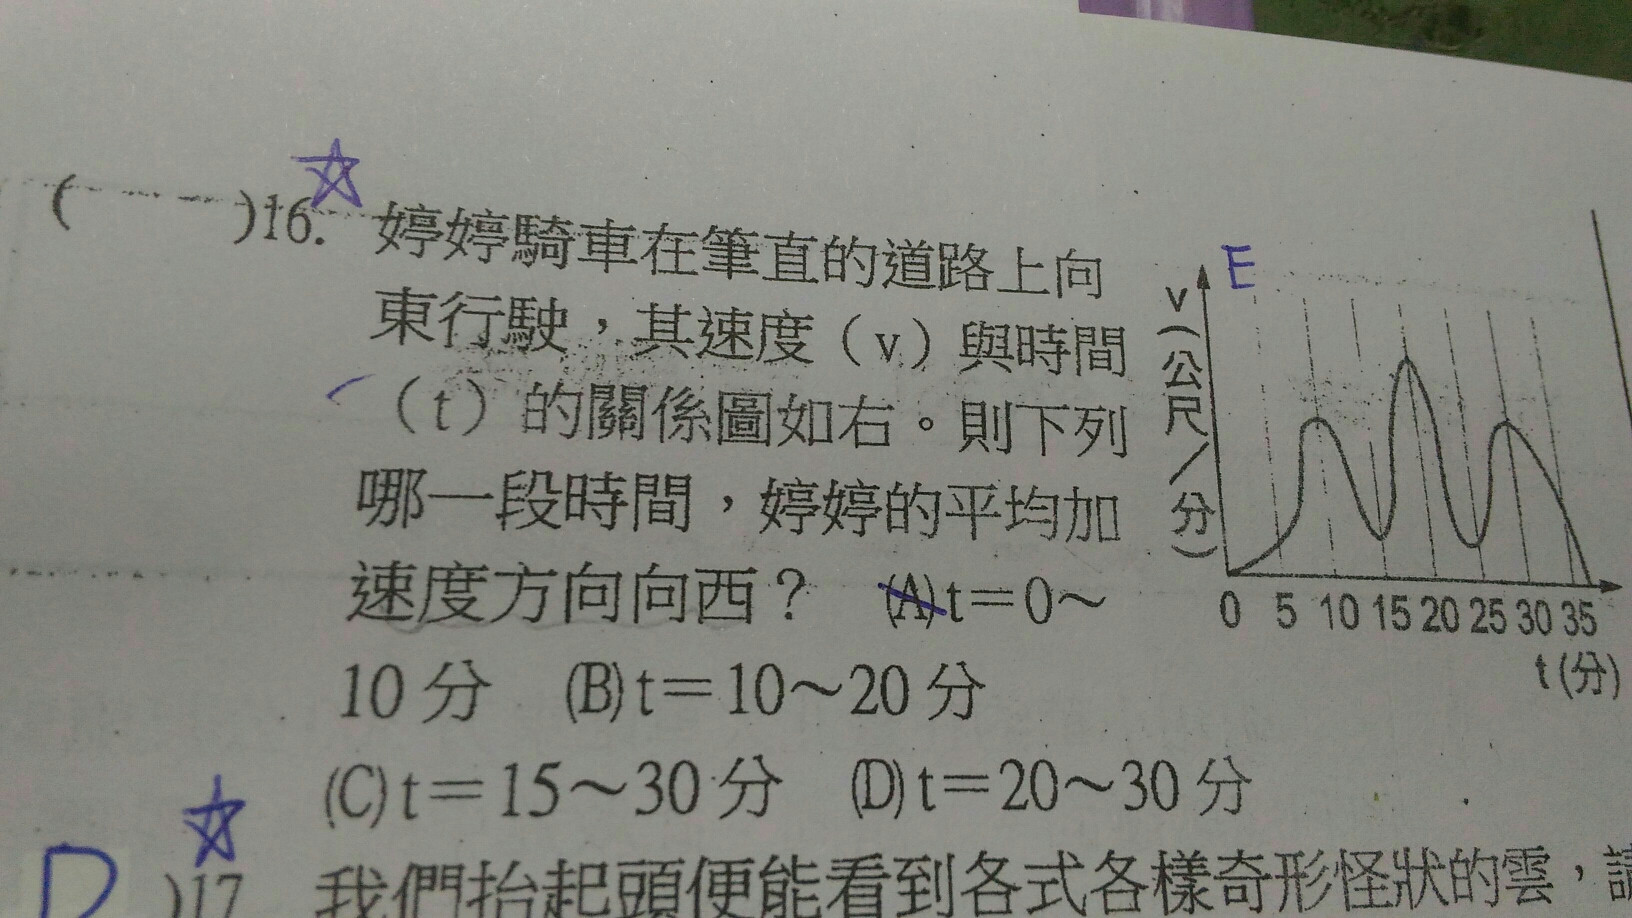 (　　)16. 婷婷騎車在筆直的道路上向
東行駛，其速度（v）與時間
（t）的關係圖如右。則下列
哪一段時間，婷婷的平均加
速度方向向西？　(A)t＝0～
10分　(B)t＝10～20分
(C)t＝15～30分　(D)t＝20～30分
E
v(公尺/分)
0 5 10 15 20 25 30 35
t(分)
D )17 我們抬起頭便能看到各式各樣奇形怪狀的雲，請